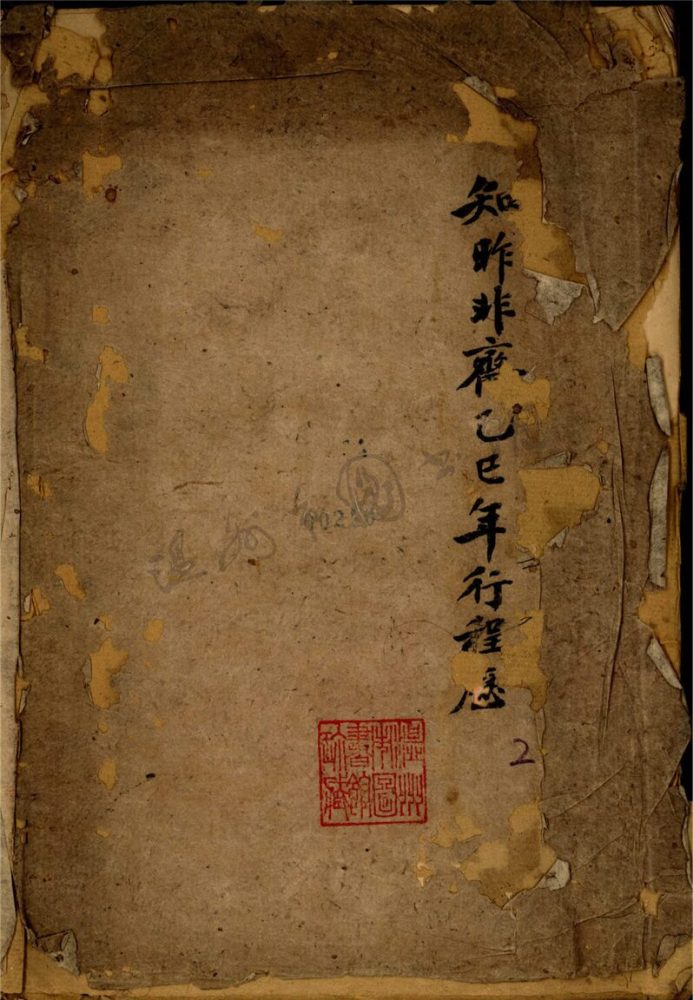 知昨非齋乙巳年行程歷
2
溫州市圖書館所藏